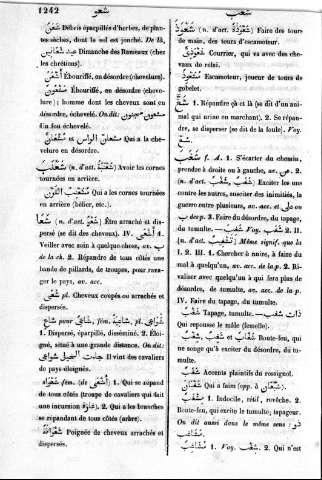 1242 شعو شغب
شَعْنٌ Débris éparpillés d'herbes, de plantes sèches, dont le sol est jonché. De là,
شعانين Dimanche des Rameaux (chez
les chrétiens).
Ébouriffé, en désordre (chevelure).
Ébouriffé, en désordre (chevelure); homme dont les cheveux sont en
désordre, échevelé. On dit: مجنون مشعون
Un fou échevelé.
مشعانّ الراس et مشعانّ Qui a la chevelure en désordre.
(n. d'act.) Avoir les cornes
tournées en arrière.
Qui a les cornes tournées
en arrière (bélier, etc.).
شعا (n. d'act. شعو) Être arraché et dispersé (se dit des cheveux). IV. أشعى 1.
Veiller avec soin à quelque chose, av. ب
de la ch. 2. Répandre de tous côtés une
bande de pillards, de troupes, pour ravager le pays, av. acc.
pl. Cheveux coupés ou arrachés et
dispersés.
شاع pour شاعي, fém. شاعية, pl. شواعي
1. Dispersé, éparpillé, disséminé. 2. Éloigné, situé à une grande distance. On dit:
جاءت الخيل شواعي Il vint des cavaliers
de pays éloignés.
شعواء fém. (de أشعى) 1. Qui se répand
de tous côtés (troupe de cavaliers qui fait
une incursion غارة). 2. Qui a les branches
se répandant de tous côtés (arbre).
Poignée de cheveux arrachés et
dispersés.
شعوذ (n. d'act. شعوذة) Faire des tours
de main, des tours d'escamoteur.
شعوذي Courrier, qui va avec des chevaux de relai.
مشعوذ Escamoteur, joueur de tours de
gobelet.
شغّ 1. Répandre çà et là (se dit d'un animal qui urine en marchant). 2. Se répandre, se disperser (se dit de la foule). Voy.
شغب f. A. 1. S'écarter du chemin,
prendre à droite ou à gauche, av. عن. 2.
(n. d'act. شغب, شغب) Exciter les uns
contre les autres, susciter des inimitiés, la
guerre entre plusieurs, av. acc. et على ou
ب de p. 3. Faire du désordre, du tapage,
du tumulte. — شغب Voy. شغب 2. II.
(n. d'act. تشغيب) Même signif. que la
I. 2. III. 1. Chercher à nuire, à faire du
mal à quelqu'un, av. acc. de la p. 2. Rivaliser avec quelqu'un à qui fera plus de
désordre, de tumulte, av. acc. de la p.
IV. Faire du tapage, du tumulte.
شغب Tapage, tumulte. — ذات شغب
Qui repousse le mâle (femelle).
شغب et شغّاب, مشغب Boute-feu, qui
ne songe qu'à exciter du désordre, du tumulte.
Accents plaintifs du rossignol.
Qui a faim (opp. à شبعان).
1. Indocile, rétif, revêche. 2.
Boute-feu, qui excite le tumulte; tapageur.
On dit aussi dans le même sens: ذو
مشاغب
1. Voy. شغب. 2. Qui n'est